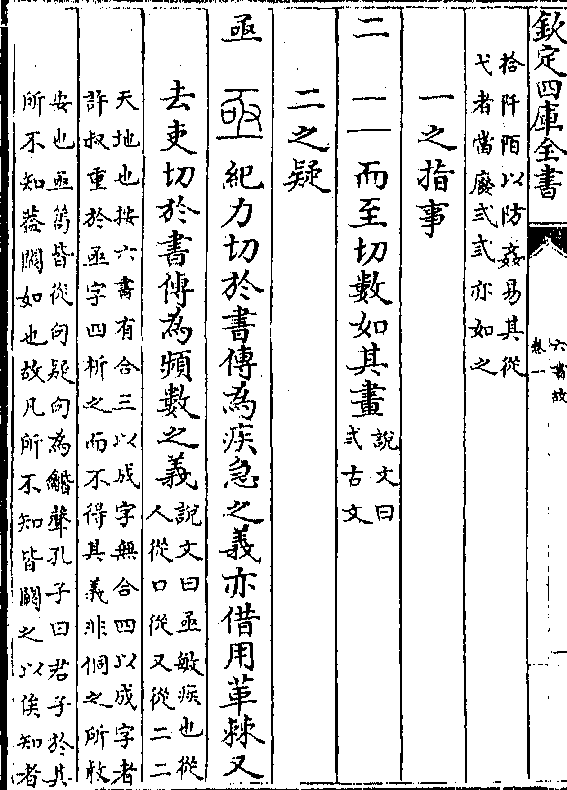 欽定四庫全書
六書故
卷一
拾阡陌以防姦易其從
弋者當廢弍弎亦如之
一之指事
二 二 而至切數如其畫說文曰
弍古文
二之疑
亟 亟 紀力切於書傳為疾急之義亦借用革棘又
去吏切於書傳為頻數之義說文曰亟敏疾也從
人從口從又從二二
天地也按六書有合三以成字無合四以成字者
許叔重於亟字四析之而不得其義非侗之所敢
安也亟茍皆從句疑句為龤聲孔子曰君子於其
所不知葢闕如也故凡所不知皆闕之以俟知者